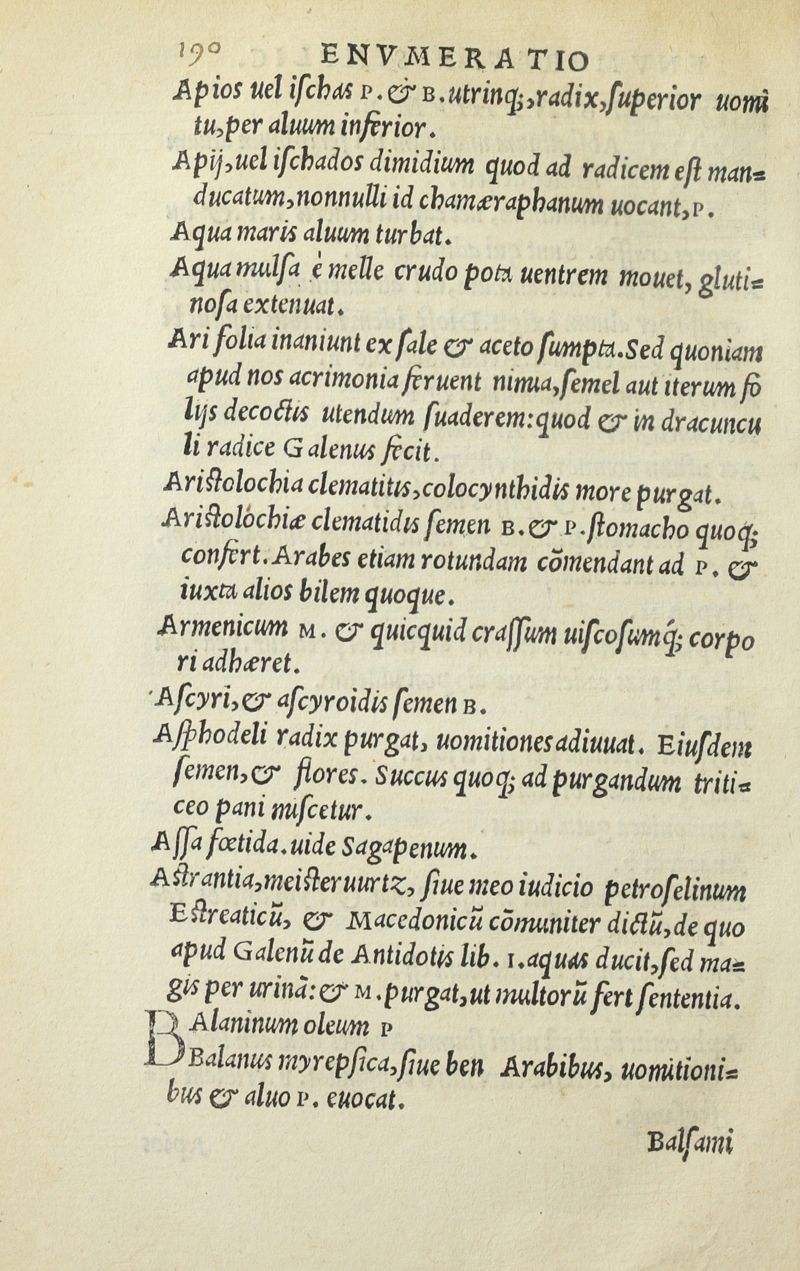 190 ENVMERATIO
Apios uel iſchas P. & B. utrinq;, radix, ſuperior uomi
tu, per aluum inferior.
Apij, uel iſchados dimidium quod ad radicem eſt man=
ducatum, nonnulli id chamæraphanum uocant, P.
Aqua maris aluum turbat.
Aqua mulſa è melle crudo pota uentrem mouet, gluti=
noſa extenuat.
Ari folia inaniunt ex ſale & aceto ſumpta. Sed quoniam
apud nos acrimonia feruent nimia, ſemel aut iterum fo
lijs decoctis utendum ſuaderem: quod & in dracuncu
li radice Galenus fecit.
Ariſtolochia clematitis, colocynthidis more purgat.
Ariſtolochiæ clematidis ſemen B. & P. ſtomacho quoq;
confert. Arabes etiam rotundam cõmendant ad P. &
iuxta alios bilem quoque.
Armenicum M. & quicquid craſſum uiſcoſumq́; corpo
ri adhæret.
Aſcyri, & aſcyroidis ſemen B.
Aſphodeli radix purgat, uomitiones adiuuat. Eiuſdem
ſemen, & flores. Succus quoq; ad purgandum triti=
ceo pani miſcetur.
Aſſa fœtida. uide Sagapenum.
Aſtrantia, meiſteruurtz, ſiue meo iudicio petroſelinum
Eſtreaticũ, & Macedonicũ cõmuniter dictũ, de quo
apud Galenũ de Antidotis lib. 1. aquas ducit, ſed ma=
gis per urinã: & M. purgat, ut multorũ fert ſententia.
BAlaninum oleum P
Balanus myrepſica, ſiue ben Arabibus, uomitioni=
bus & aluo P. euocat.
Balſami